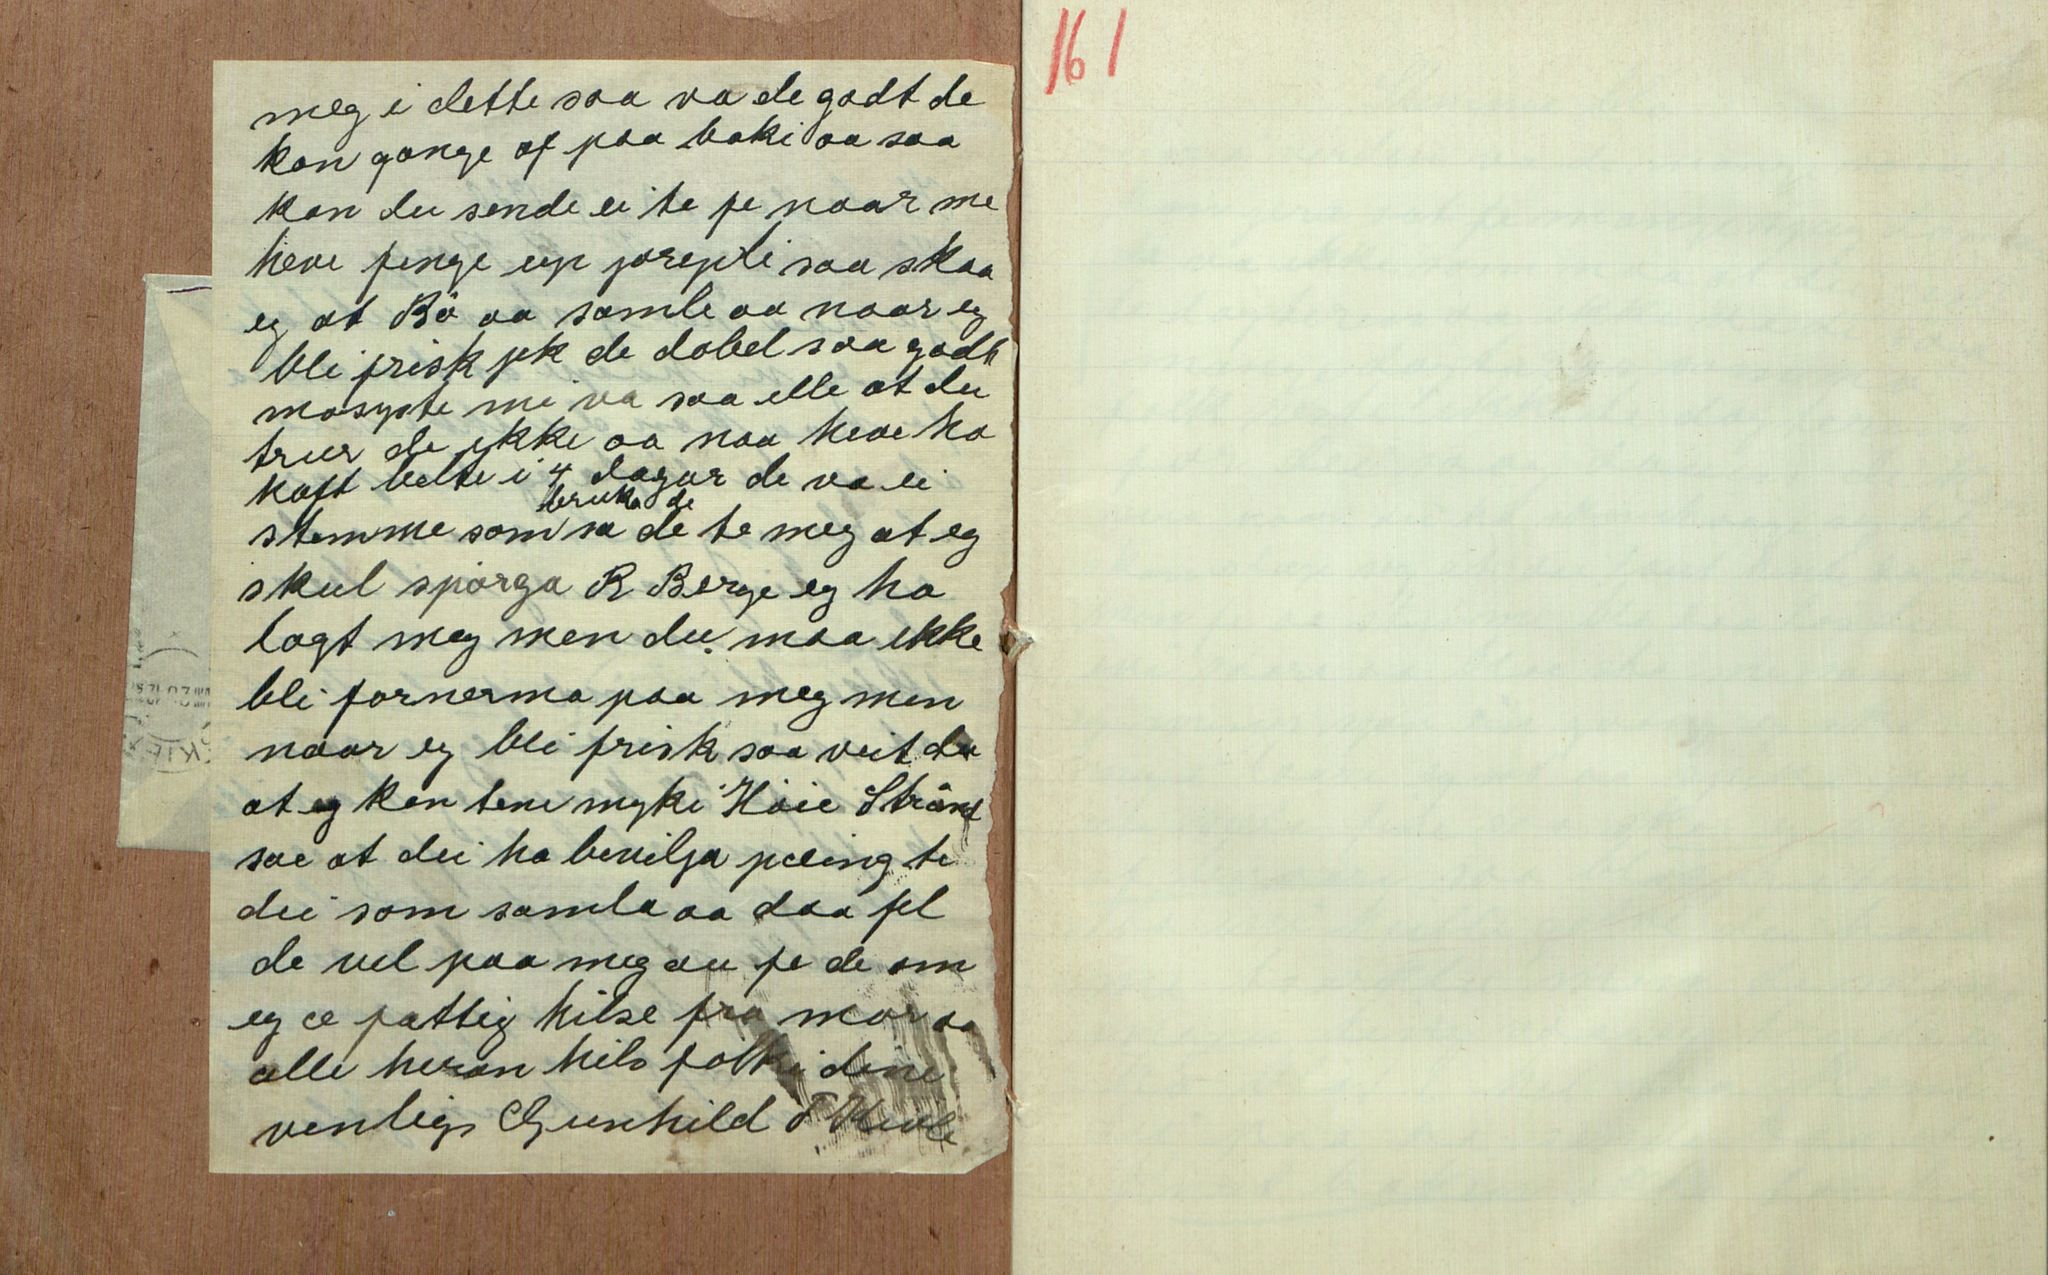 161
meg i dette saa va de godt de
kan gange af paa baki aa saa
kan du sende ei te fe naar me
heve fenge up jorepli saa skaa
eg at Bö aa samle aa naar eg
bli frisk fek de dobel saa godt
masyste mi va saa elle at du
trur de ikke aa naa heve ho
kaft belte i 4 dagar de va ei
bruka de
stemme som sa de te meg at eg
skul spörga R Berge eg ha
lagt meg men du maa ikke
bli fornerma paa meg men
naar eg bli frisk saa veit du
at eg kan tene myki Höie Strånd
sae at dei ha bevilja pæing te
dei som samla aa daa fel
de vel paa meg au fe de om
eg æ fattig hilse fra mor aa
alle heran hils folki dine
venligs Gunhild T